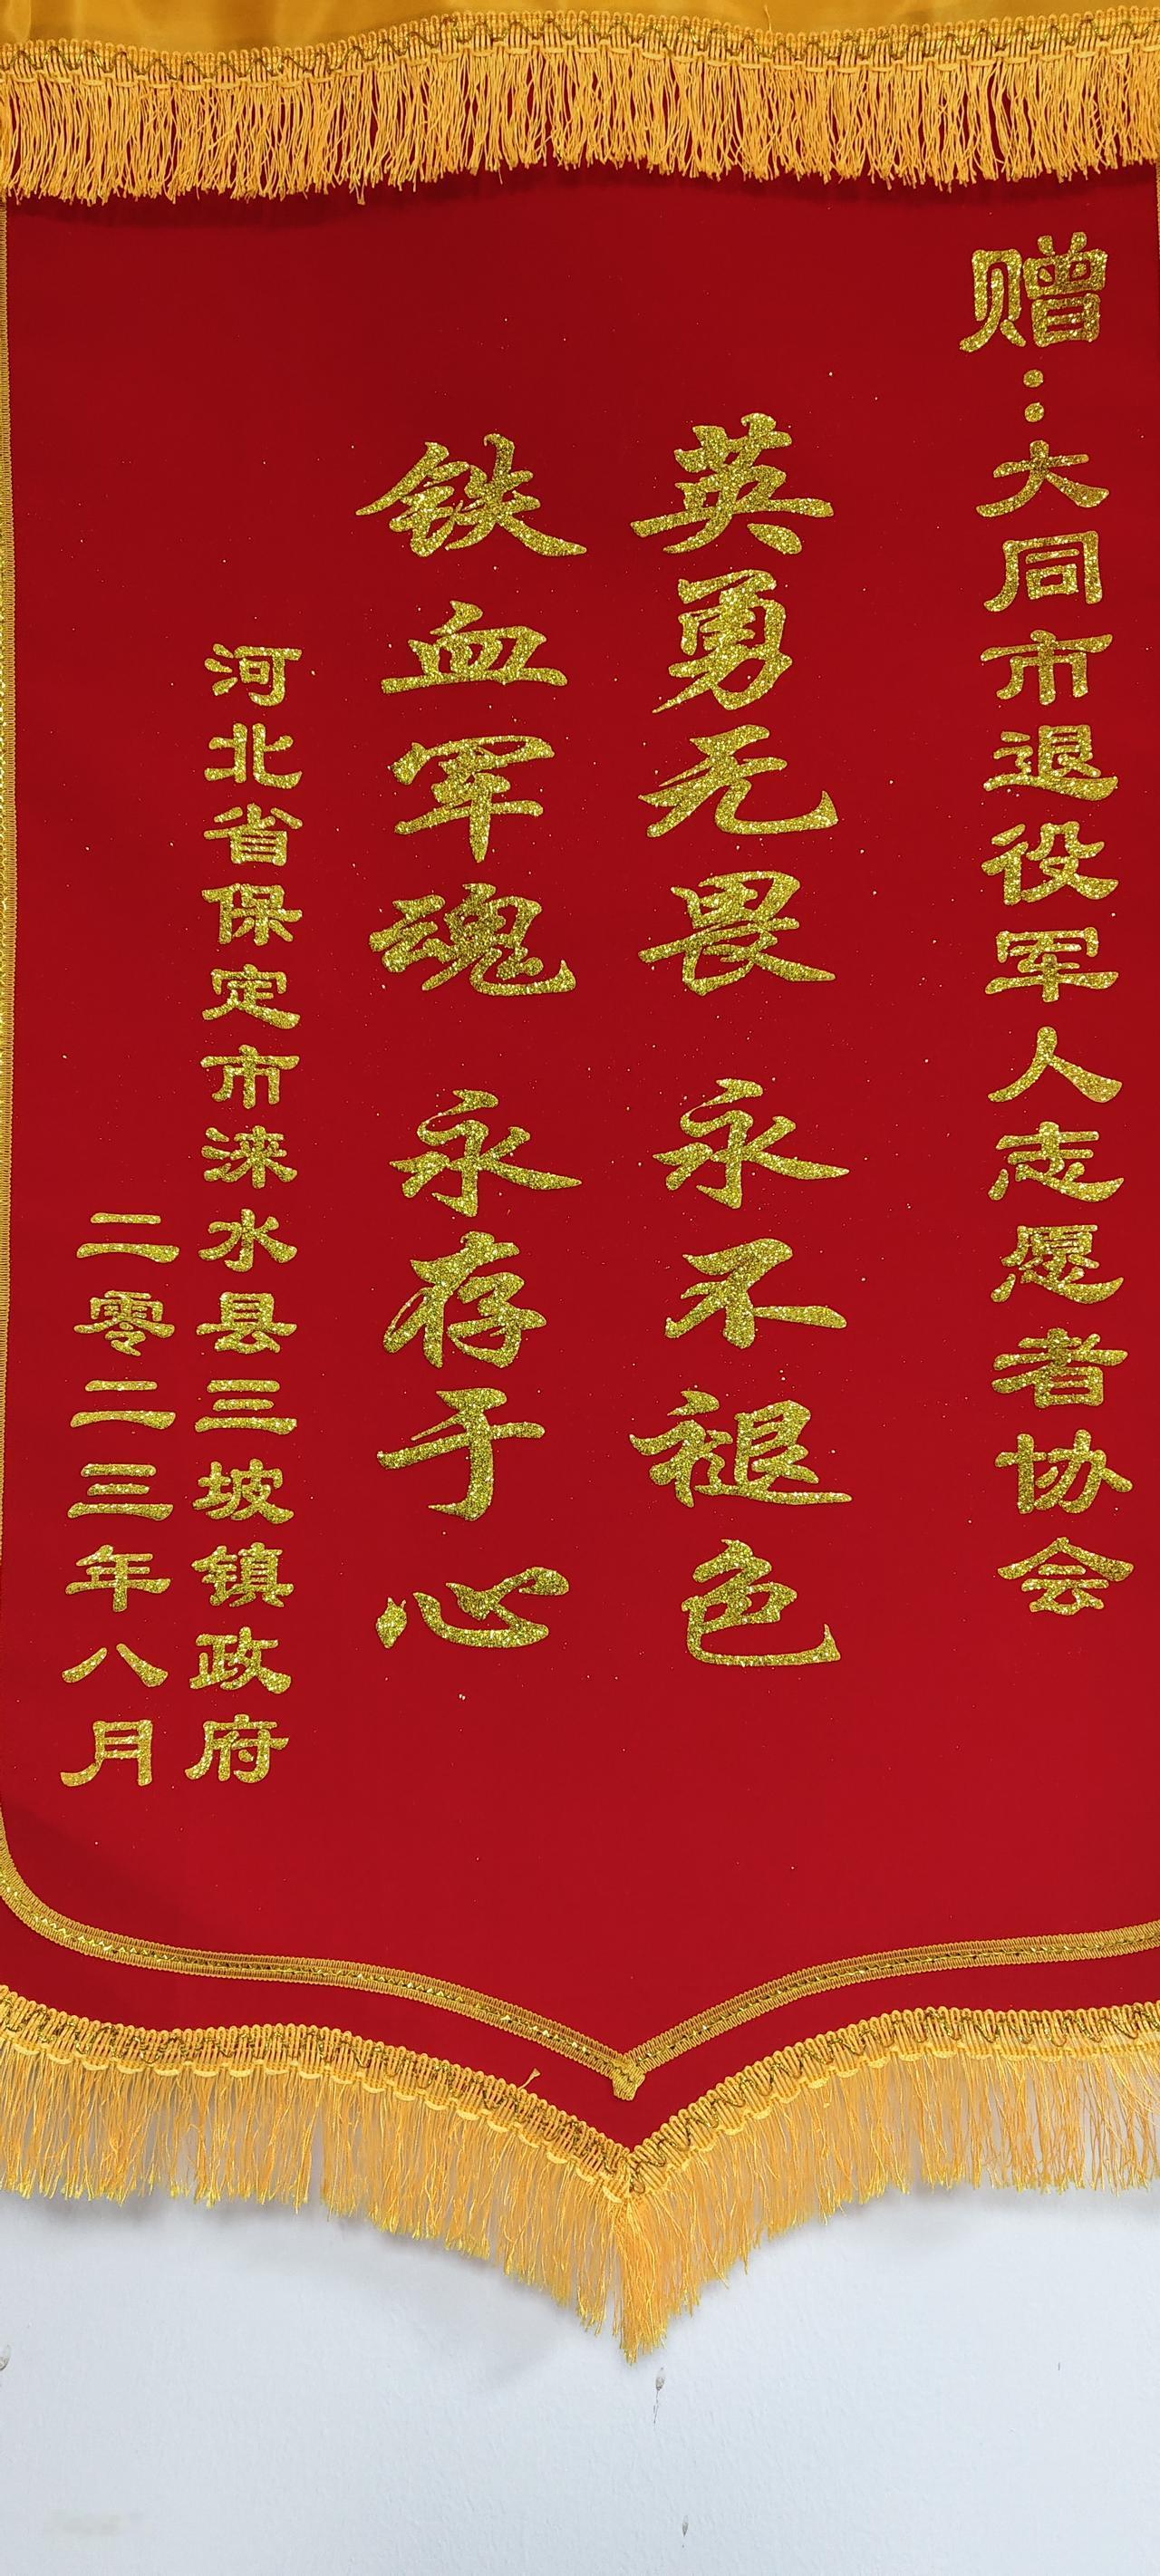 赠：大同市退役军人志愿者协会
英勇无畏 永不褪色
铁血军魂 永存于心
河北省保定市涞水县三坡镇政府
二零二三年八月